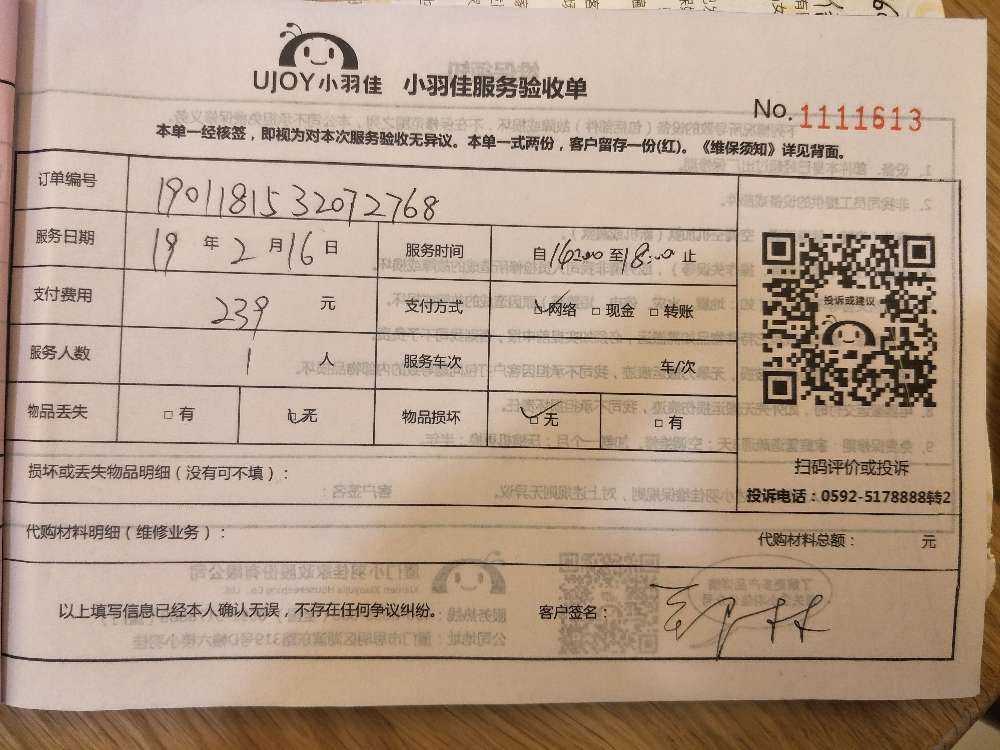 UJOY小羽佳 小羽佳服务验收单
No. 1111613
本单一经核签，即视为对本次服务验收无异议。本单一式两份，客户留存一份(红)。《维保须知》详见背面。
订单编号 1901181532072768
服务日期 19 年 2 月 16 日 服务时间 自 16:00 至 18:00 止
支付费用 239 元 支付方式 □网络 □现金 □转账
投诉或建议
服务人数 1 人 服务车次 车/次
物品丢失 □有 □无 物品损坏 □无 □有
扫码评价或投诉
损坏或丢失物品明细（没有可不填）：
投诉电话：0592-5178888转2
代购材料明细（维修业务）： 代购材料总额： 元
以上填写信息已经本人确认无误，不存在任何争议纠纷。 客户签名：